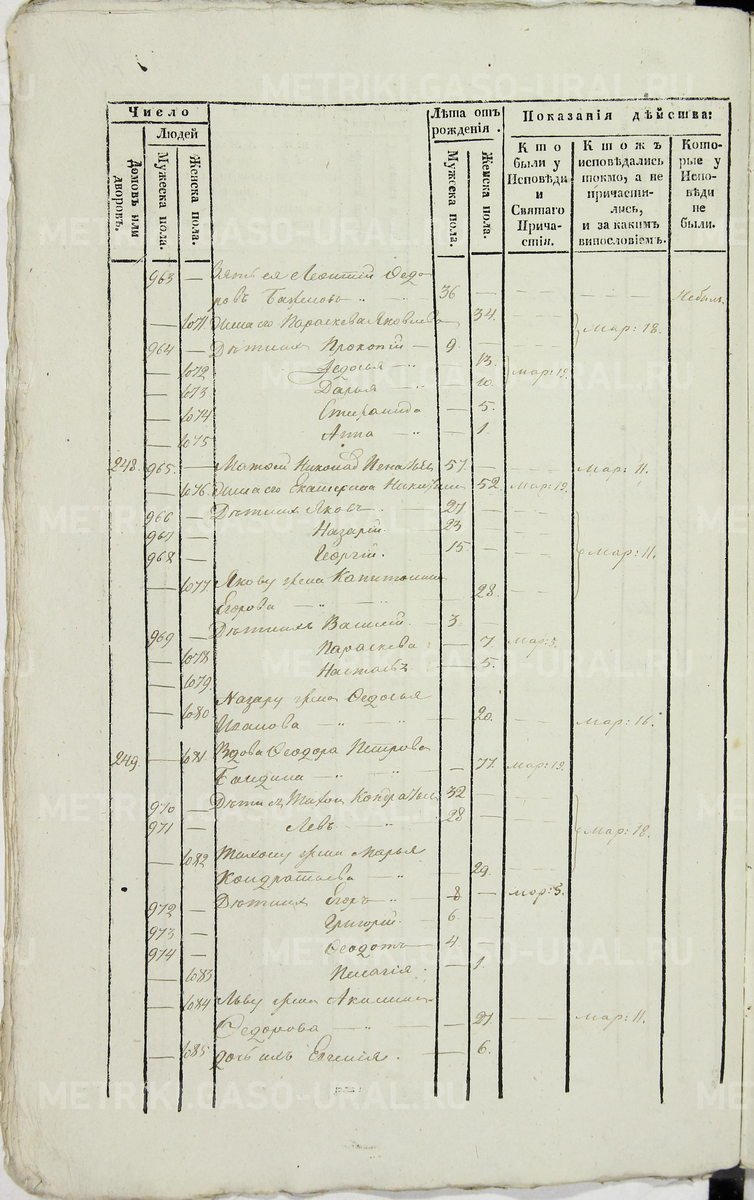 Число
Людей
Домовъ или дворовъ.
Мужеска пола.
Женска пола.
Лѣта отъ рожденія.
Мужеска пола.
Женска пола.
Показанія дѣйства:
Кто были у Исповѣди и Святаго Причастія.
Кто жъ исповѣдались токмо, а не причастились, и за какимъ винословіемъ.
Которые у Исповѣди не были.
963 — Зять ея Леонтій Ѳедо
ровъ 36 — — — Небылъ.
— 1071 Жена его Параскева Яковлева — 34. — Мар: 18.
964 — Дѣти ихъ Прокопій — 9. —
— 1072 Ѳедосья — 13. Мар: 12.
— 1073 Дарья — 10.
— 1074 — 5.
— 1075 Анна — 1.
248. 965. — Николаевъ 57. — — Мар: 11.
— 1076. Жена его Екатерина 52. Мар: 12.
966 — Дѣти ихъ Яковъ — 27 —
967 — Назарій. 23 —
968 — Георгій. 15 — Мар: 11.
— 1077. Якову жена Капитолина
Егорова — 28.
969 — Дѣти ихъ Василій. — 3.
— 1078 Параскева — 7. Мар: 5.
— 1079 Настасья — 5.
— 1080 Назару жена Ѳедосья
Иванова — 20. — Мар: 16.
249. — 1081 Вдова Ѳеодора Петрова
— 77. Мар: 12.
970 — Дѣти ея Тихон Кондратьев 32 —
971 — Левъ 28 — Мар: 18.
— 1082 Тихону жена Марья
Кондратьева — 29.
972 — Дѣти ихъ Егоръ 8 — Мар: 5.
973 — Григорій. 6
974 — Ѳеодотъ — 4
— 1083 Пелагія. — 1.
— 1084 Льву жена Акилина
Ѳедорова — 27. — Мар: 11.
— 1085 дочь ихъ Евгенія. — 6.
METRIKI.GASO-URAL.RU